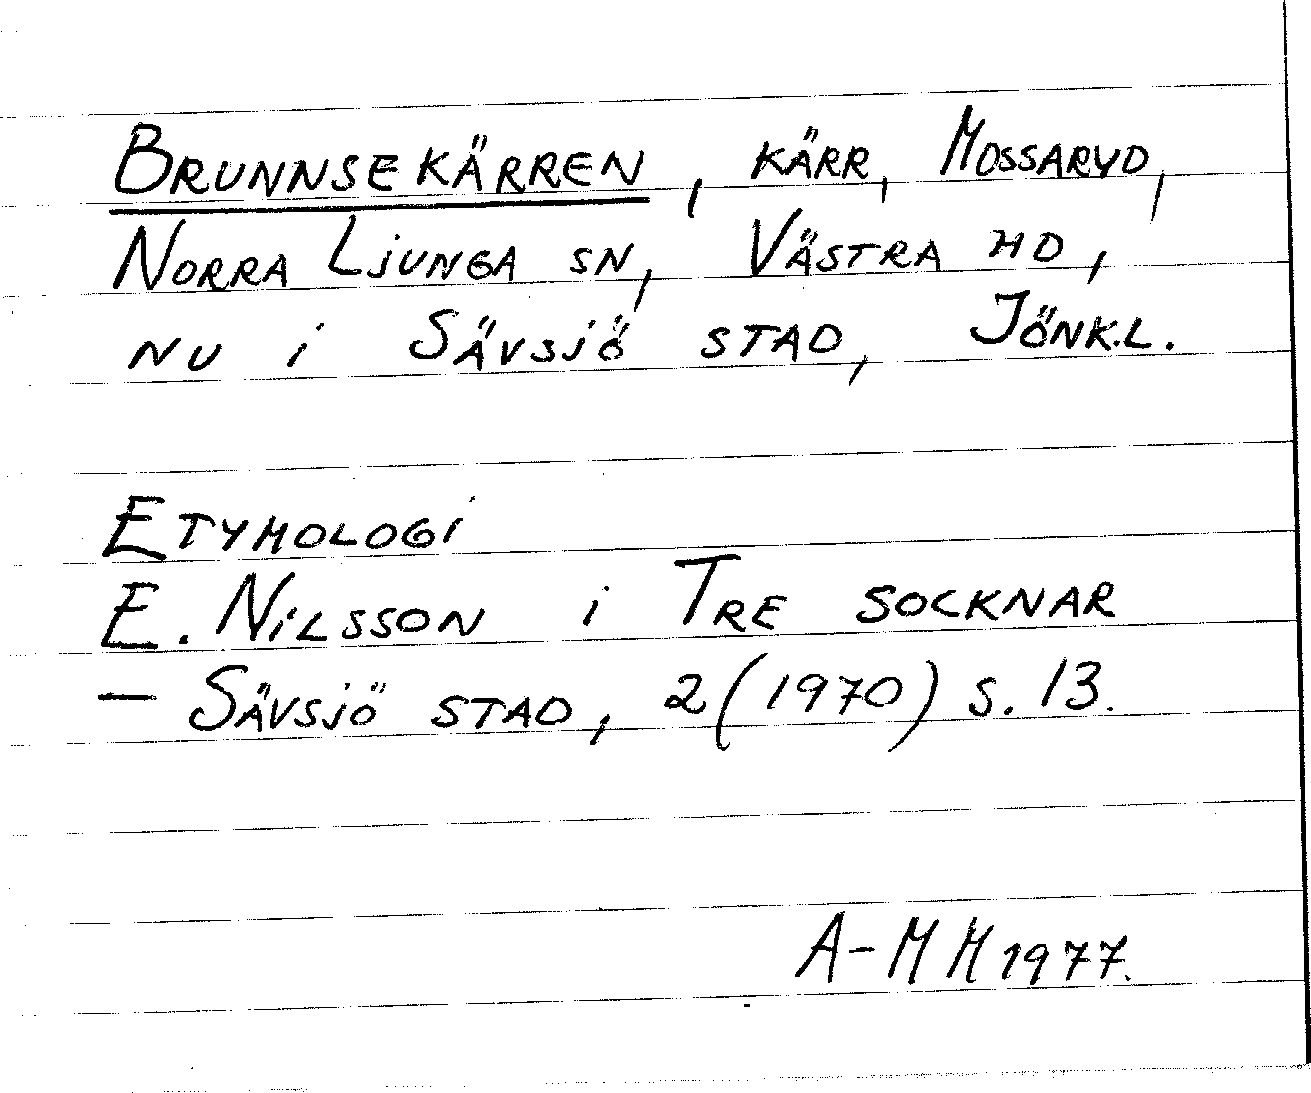 BRUNNSEKÄRREN, KÄRR, MOSSARYD,
NORRA LJUNGA SN, VÄSTRA HD,
NU i SÄVSJÖ STAD, JÖNK.L.
ETYMOLOGI
E. NILSSON i TRE SOCKNAR
– SÄVSJÖ STAD, 2 (1970) S. 13.
A-MM 1977.